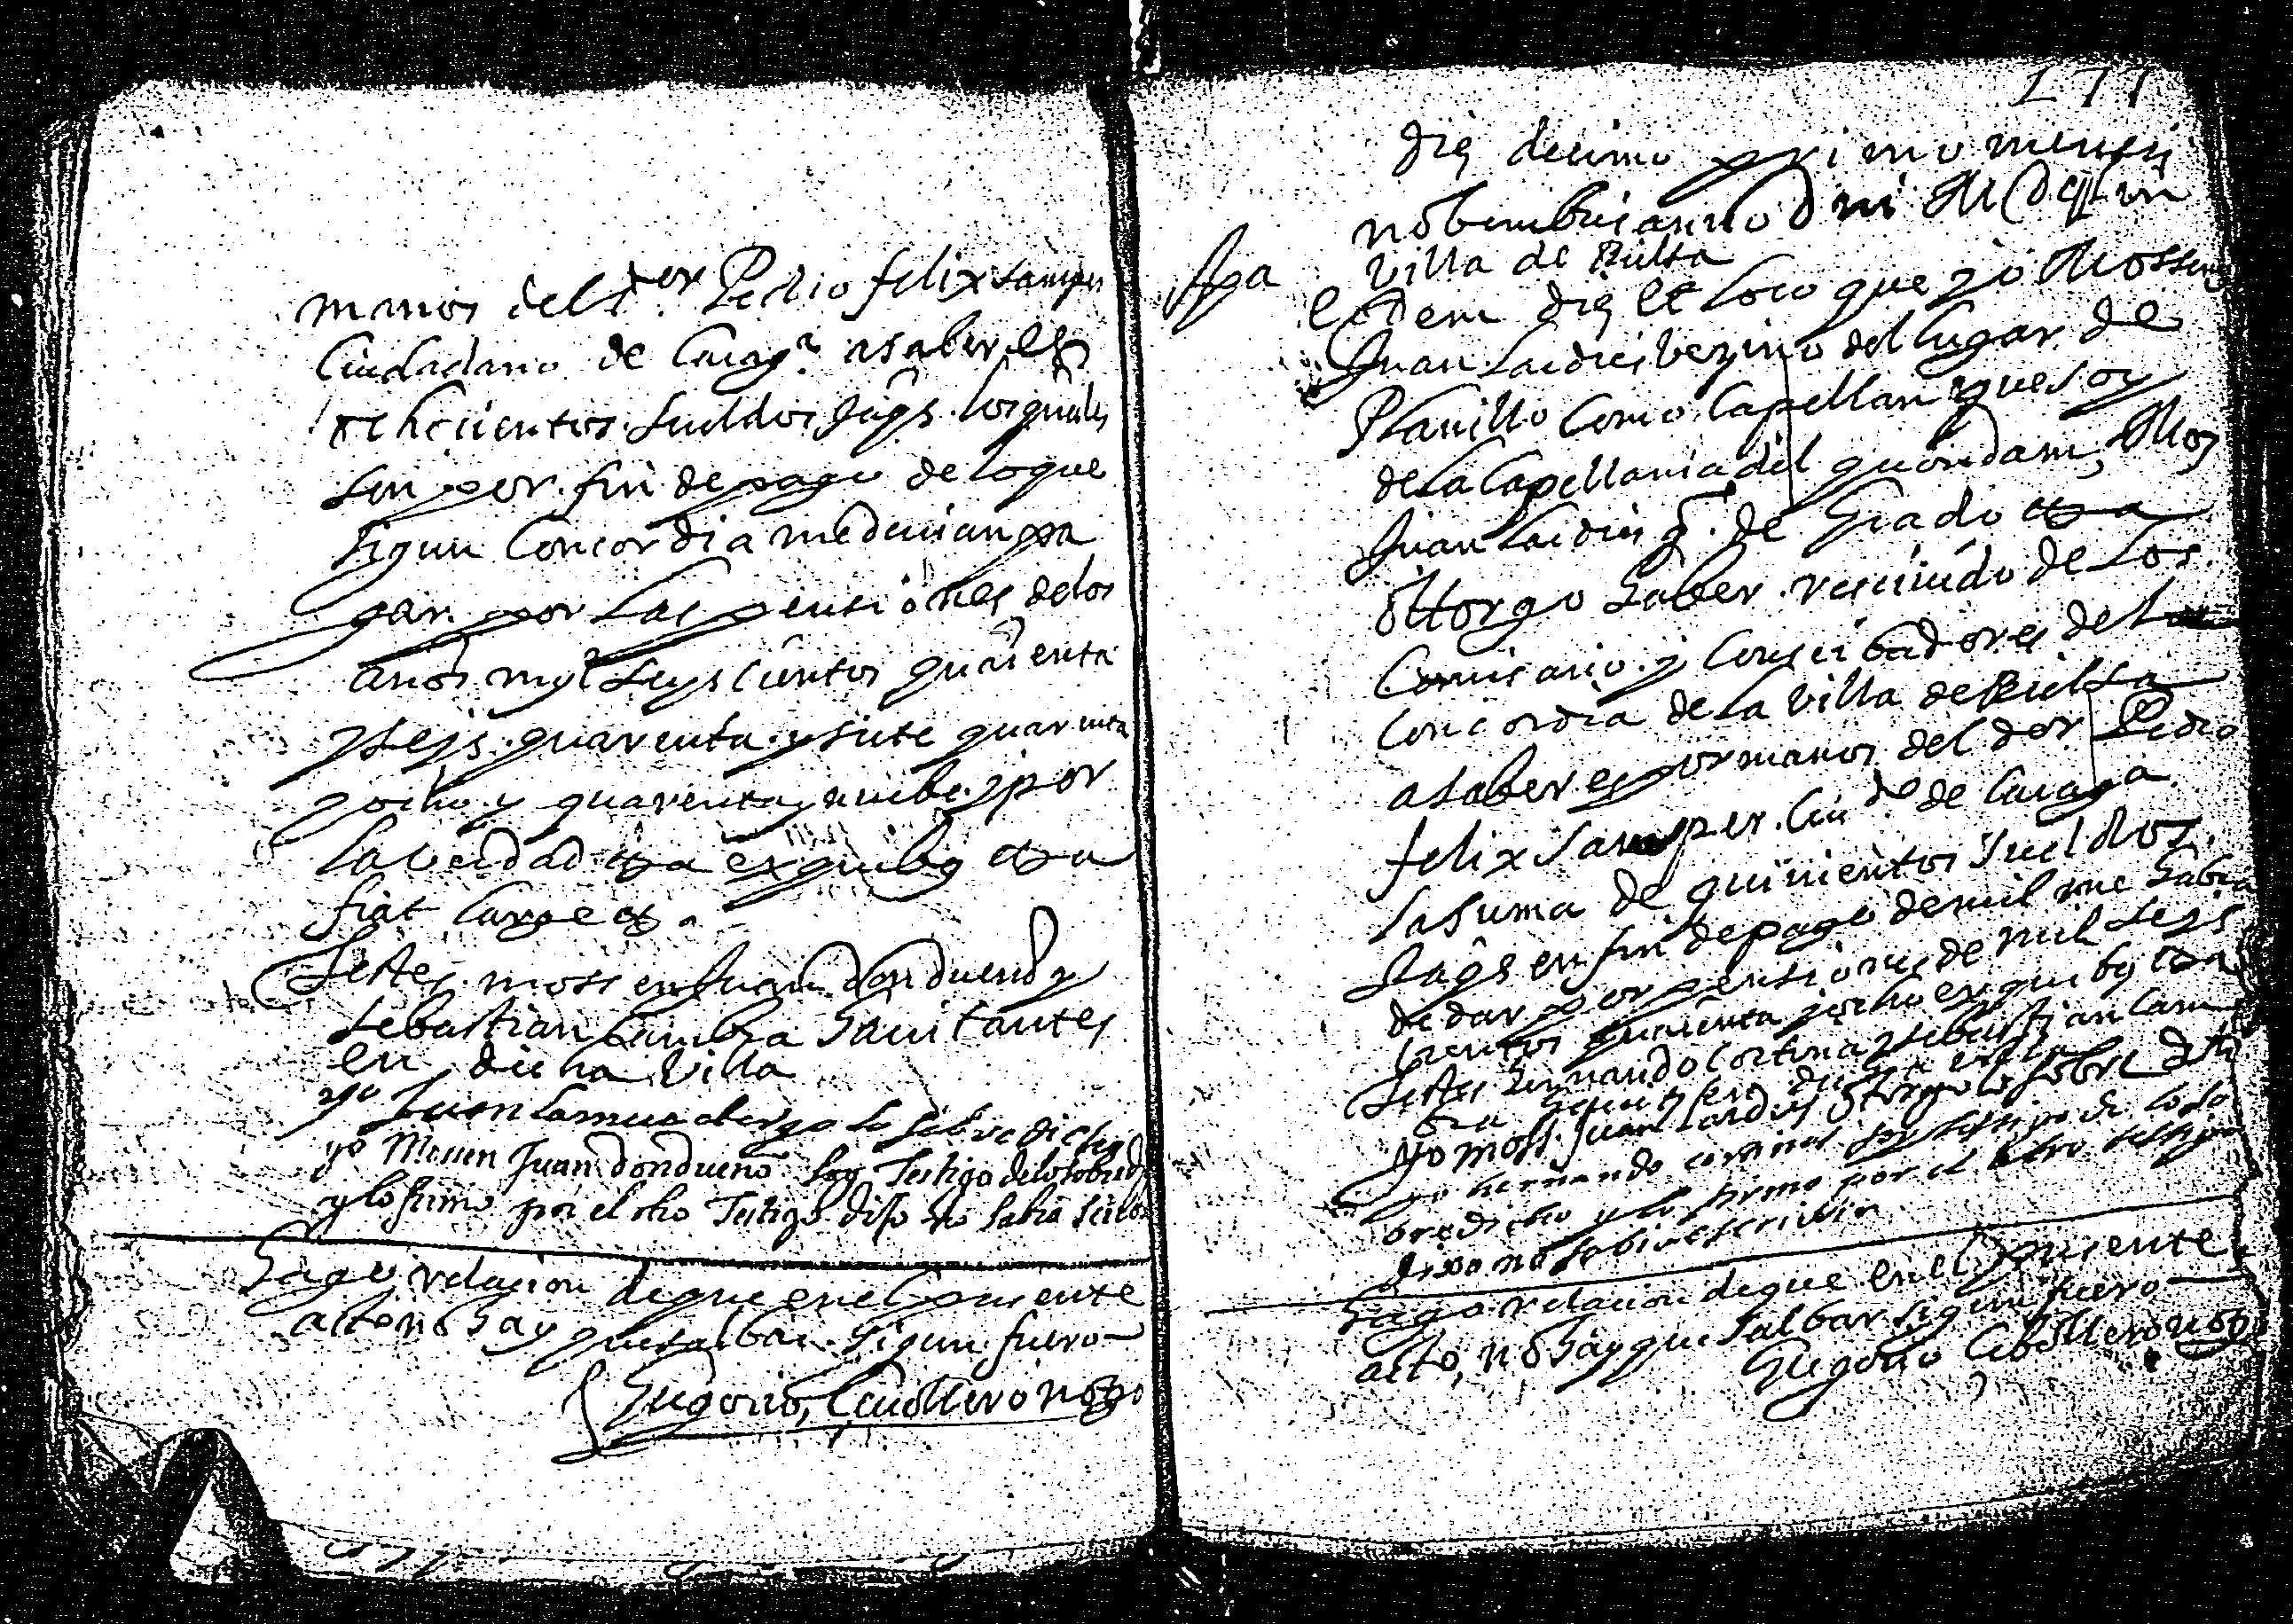 manos del dor Pedro felix samper
Ciudadano de Carag.ª asaber es
ochocientos sueldos Jaqs. los quales
son por fin de pago de loque
sigun Concordia me devian pa
gar por las pensiones delos
años myl seyscientos quarenta
y seys quarenta y siete quarenta
y ocho y quarenta y nuibe y por
la verdad etta ex quibus etta
fiat large et.
Testes mossen Juan Donduend y
sebastian Cambra havitantes
en dicha Villa
yo Juan otorgo lo sobredicho
yo Mossen Juan Dondueno soy Testigo delo sobred
y lo firmo por el otro Testigo dijo no sabia scrib
Hago relacion de que en el presente
acto no hay que salbar sigun fuero
Gregorio, Cavallero notto
171
Die decimo primo mensis
nobembris anno Dni MDC
villa de Ruesta
Apa
Eodem die et loco que yo Mossen
Juan Lardies vezino del lugar de
Planillo Como Capellan que soy
de la Capellania del quondam Mos
Juan Lardies q. de Grado etta
ottorgo haber recivido de los
Comisario y Conserbadores de la
Concordia de la Villa de Ruesta
asaber es por manos del dor Pedro
felix Samper Ciu.do de Caraga
la suma de quinientos sueldos
Jaqs en fin de pago de mil me habia
de dar por pensiones de mil seys
cientos quarenta y ocho ex quibus etta
Testes hernando Cortina y sebastian Cam
bra havites en dicha villa
yo moss. Juan Lardies otorgo lo sobre dito
yo hernando cortinas soy testigo de lo so
bredicho y lo firmo por el otro testigo
dixo no sabia escrivir
Hago relacion de que en el presente
acto, no hay que salbar sigun fuero
Gregorio Caballero notto